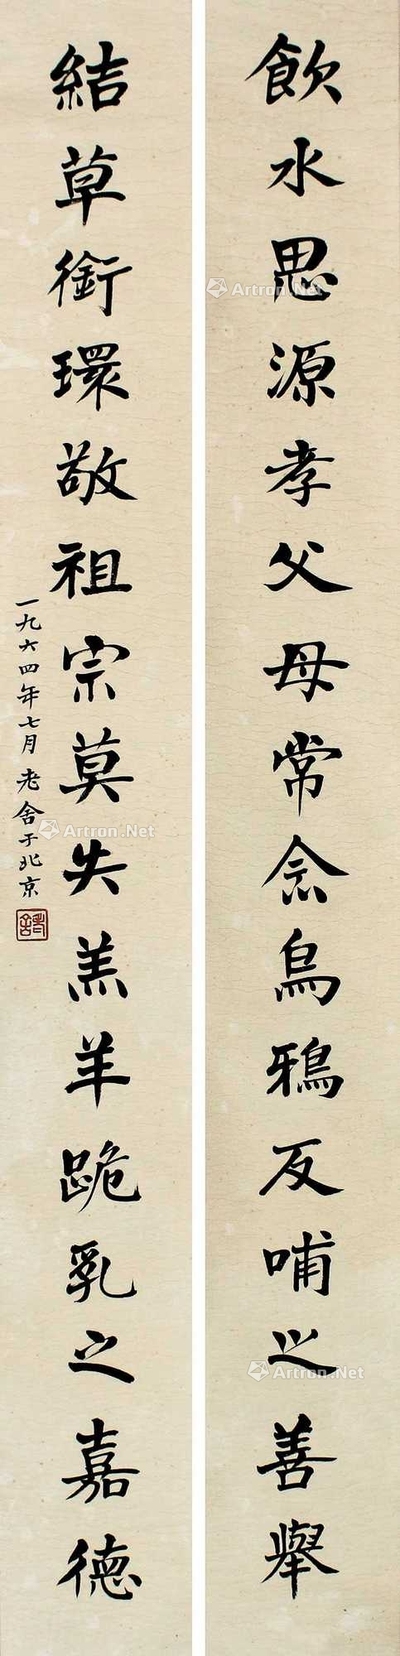 飲水思源孝父母常念烏鴉反哺之善舉
結草銜環敬祖宗莫失羔羊跪乳之嘉德
一九六四年七月老舍于北京
Artron.Net
Artron.Net
Artron.Net